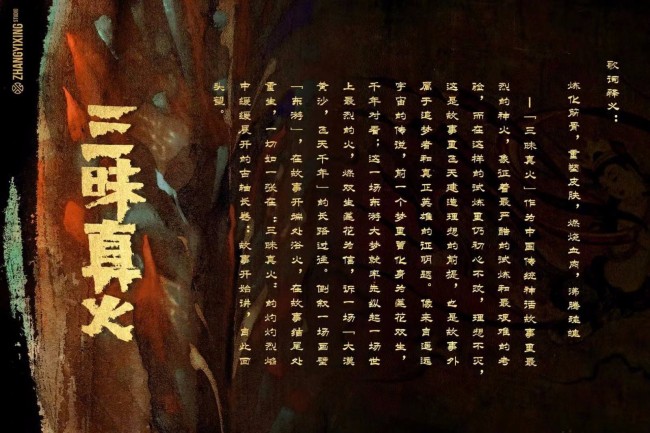 ZHANGYIXING STUDIO
三昧真火
歌词释义：
炼化筋骨，重塑皮肤，燃烧血肉，沸腾魂魄
—「三昧真火」作为中国传统神话故事里最
烈的神火，象征着最严酷的试炼和最艰难的考
验，而在这样的试炼里仍初心不改，理想不灭，
这是故事里飞天建造理想的前提，也是故事外
属于追梦者和真正英雄的证明题。像来自遥远
宇宙的传说，前一个梦里曾化身为莲花双生，
千年对看；这一场东游大梦就率先纵起一场世
上最烈的火，燃双生莲花为信，诉一场「大漠
黄沙，飞天千年」的长路过往。倒叙一场画壁
「东游」，在故事开端处浴火，在故事结尾处
重生，一切如一张在「三昧真火」的灼灼烈焰
中缓缓展开的古轴长卷：故事开始讲，自此回
头望。